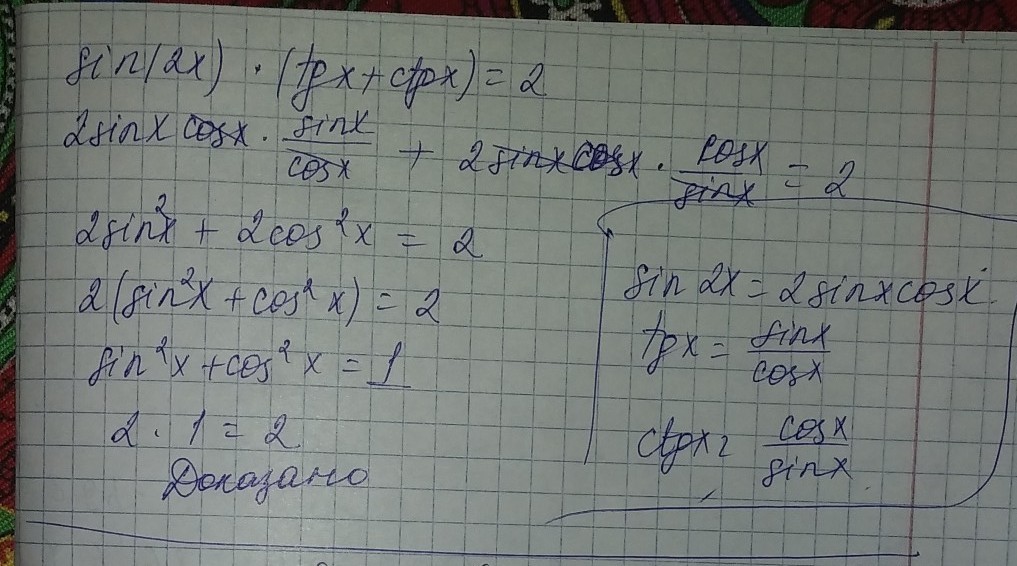 sin(2x) · (tgx + ctgx) = 2
2sinx cosx · sinx/cosx + 2sinxcosx · cosx/sinx = 2
2sin²x + 2cos²x = 2
2(sin²x + cos²x) = 2
sin²x + cos²x = 1
2 · 1 = 2
Доказано
sin 2x = 2sinxcosx
tgx = sinx/cosx
ctgx = cosx/sinx